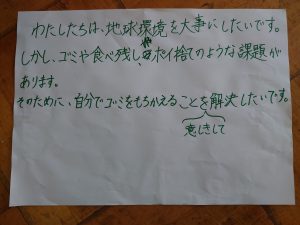 わたしたちは、地球環境を大事にしたいです。
しかし、ゴミや食べ残しやポイ捨てのような課題が
あります。
そのために、自分でゴミをもちかえることを解決したいです。
意しきして